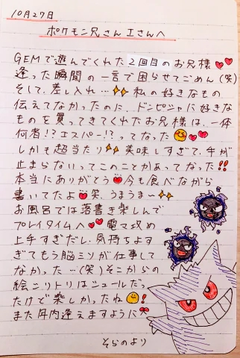 10月27日
ポケモン兄さん Iさんへ
GEMで遊んでくれた2回目のお兄様
逢った瞬間の一言で困らせてごめん(笑)
そして、差し入れ…私の好きなもの
伝えてなかったのに、ドンピシャに好きな
ものを買ってきてくれたお兄様は、一体
何者!?エスパー!?ってなった
しかも超当たり美味しすぎて、手が
止まらないってこのことかあってなった!!
本当にありがとう今も食べながら
書いてたよ笑 うまうまー
お風呂では落書き楽しんで
プレイタイムへ電マ攻め
上手すぎだし、気持ちよす
ぎてもう脳ミソが仕事して
なかったー(笑)そこからの
絵シリトリはシュールだっ
たけど楽しかったね!
また年内逢えますように
そらのより